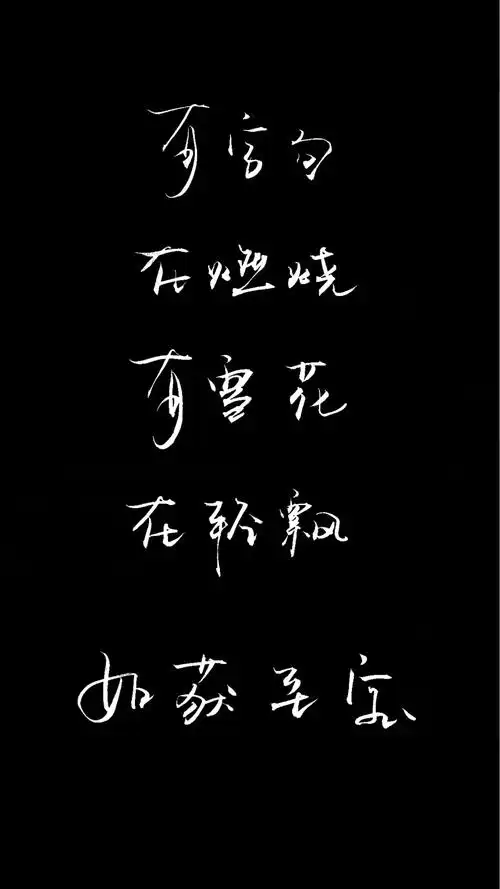 有字句
在燃烧
有雪花
在轻飘
如获至宝